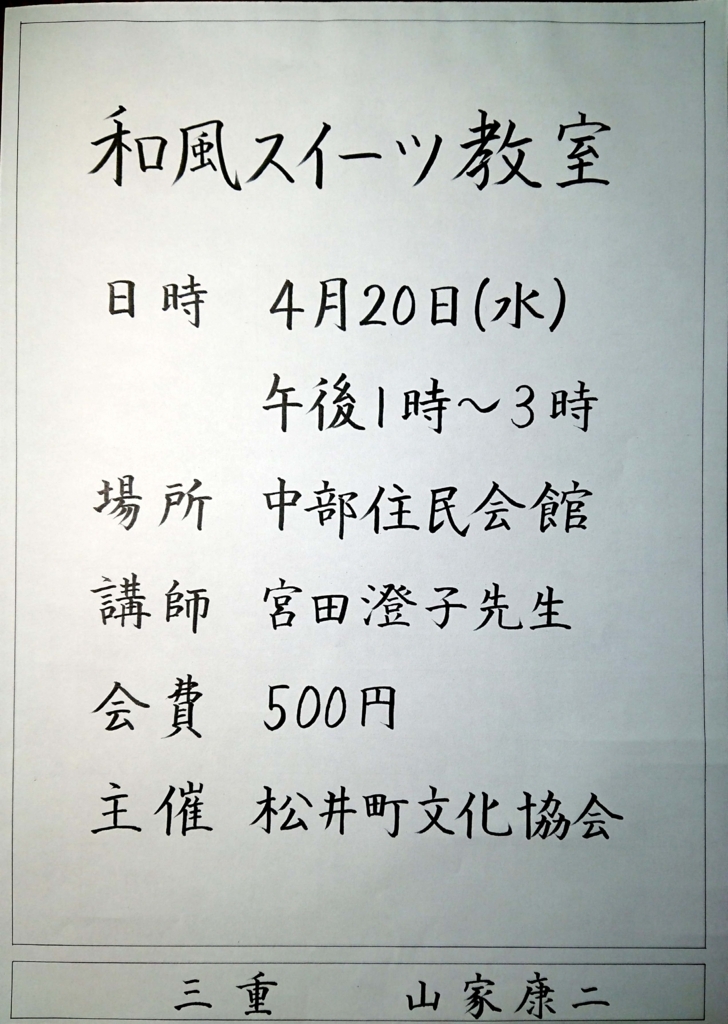 和風スイーツ教室
日時 4月20日(水)
午後1時～3時
場所 中部住民会館
講師 宮田澄子先生
会費 500円
主催 松井町文化協会
三重 山家康二